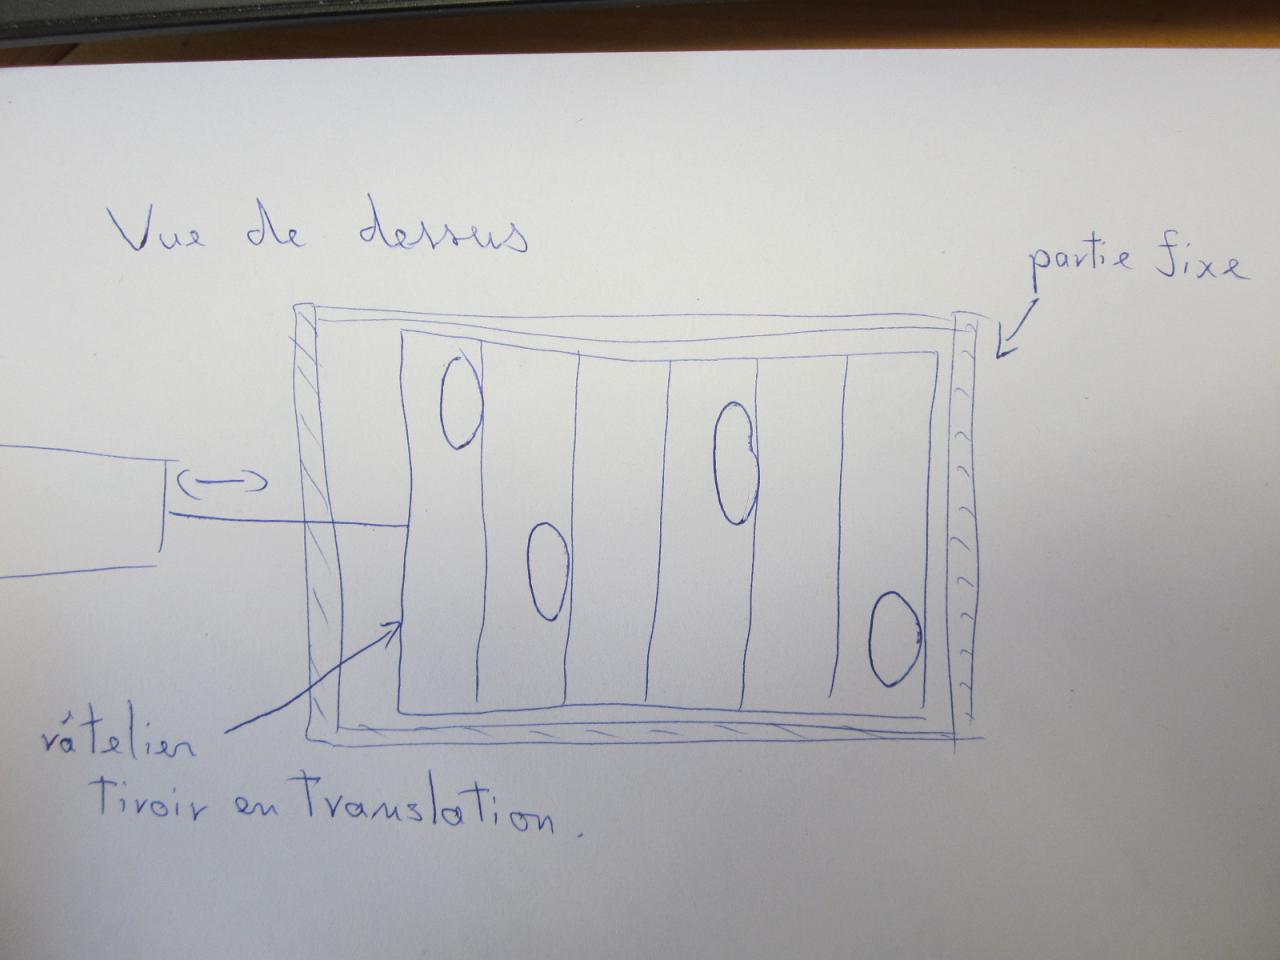 Vue de dessus
partie fixe
râtelier
Tiroir en Translation.